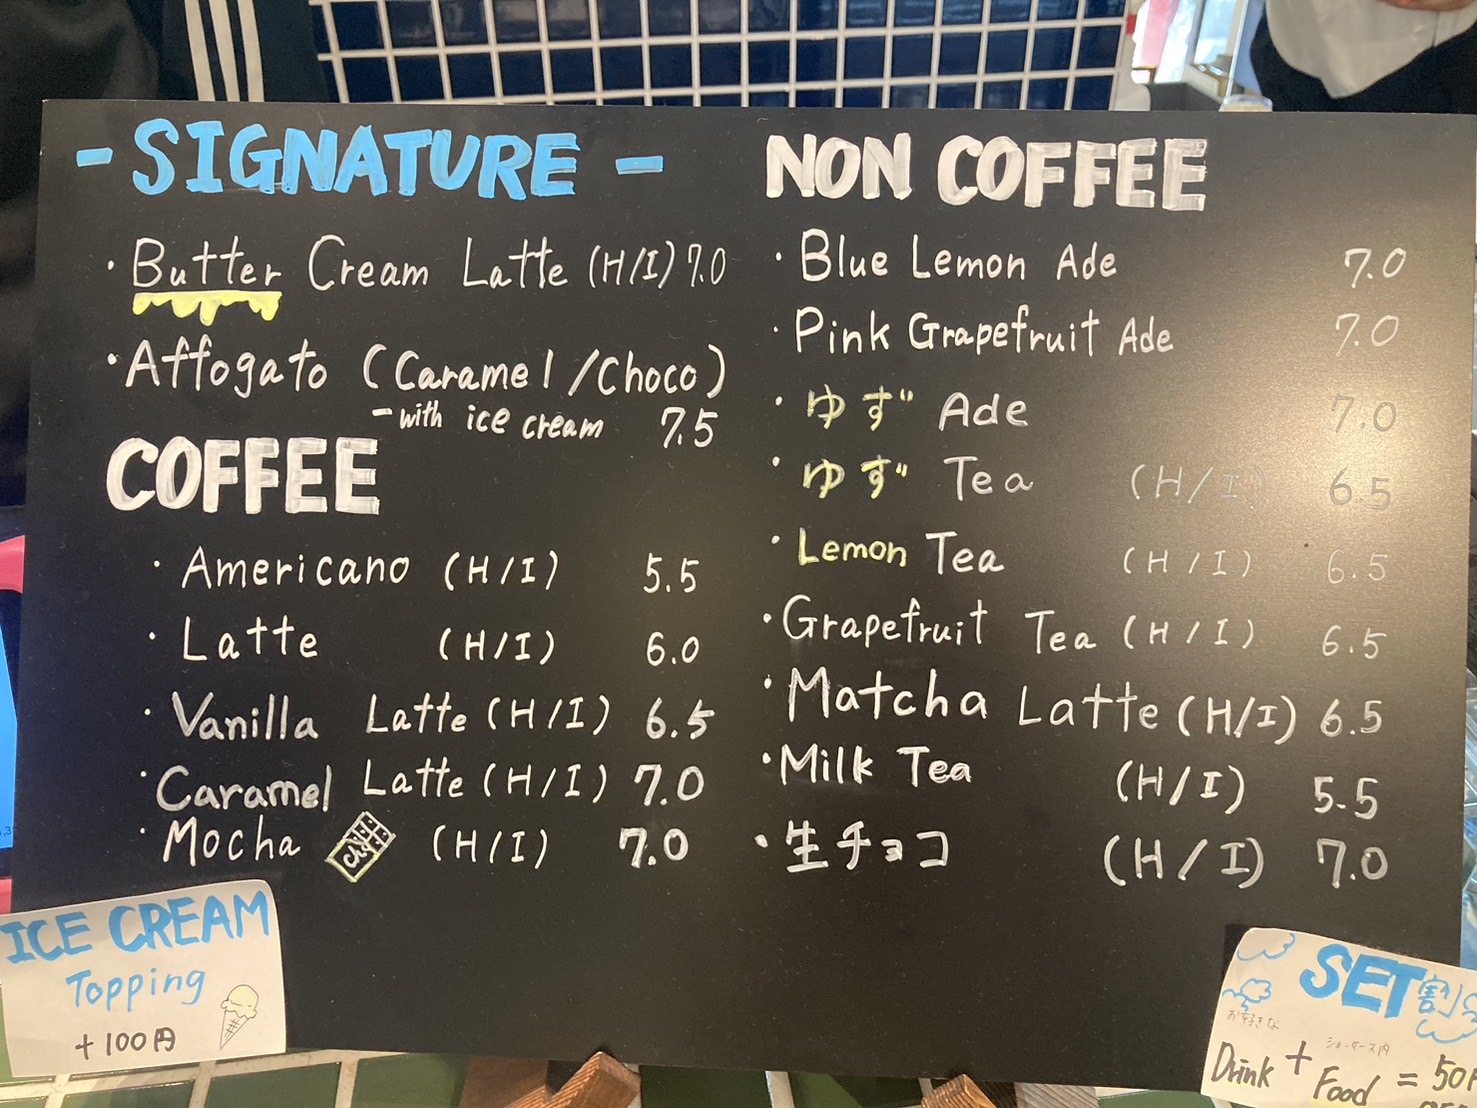 - SIGNATURE -
・Butter Cream Latte (H/I) 7.0
・Affogato (Caramel/Choco)
- with ice cream 7.5
COFFEE
・Americano (H/I) 5.5
・Latte (H/I) 6.0
・Vanilla Latte (H/I) 6.5
・Caramel Latte (H/I) 7.0
・Mocha (H/I) 7.0
NON COFFEE
・Blue Lemon Ade 7.0
・Pink Grapefruit Ade 7.0
・ゆず Ade 7.0
・ゆず Tea (H/I) 6.5
・Lemon Tea (H/I) 6.5
・Grapefruit Tea (H/I) 6.5
・Matcha Latte (H/I) 6.5
・Milk Tea (H/I) 5.5
・生チョコ (H/I) 7.0
ICE CREAM
Topping
+100円
SET割
お好きな
ショーケース内
Drink + Food = 50